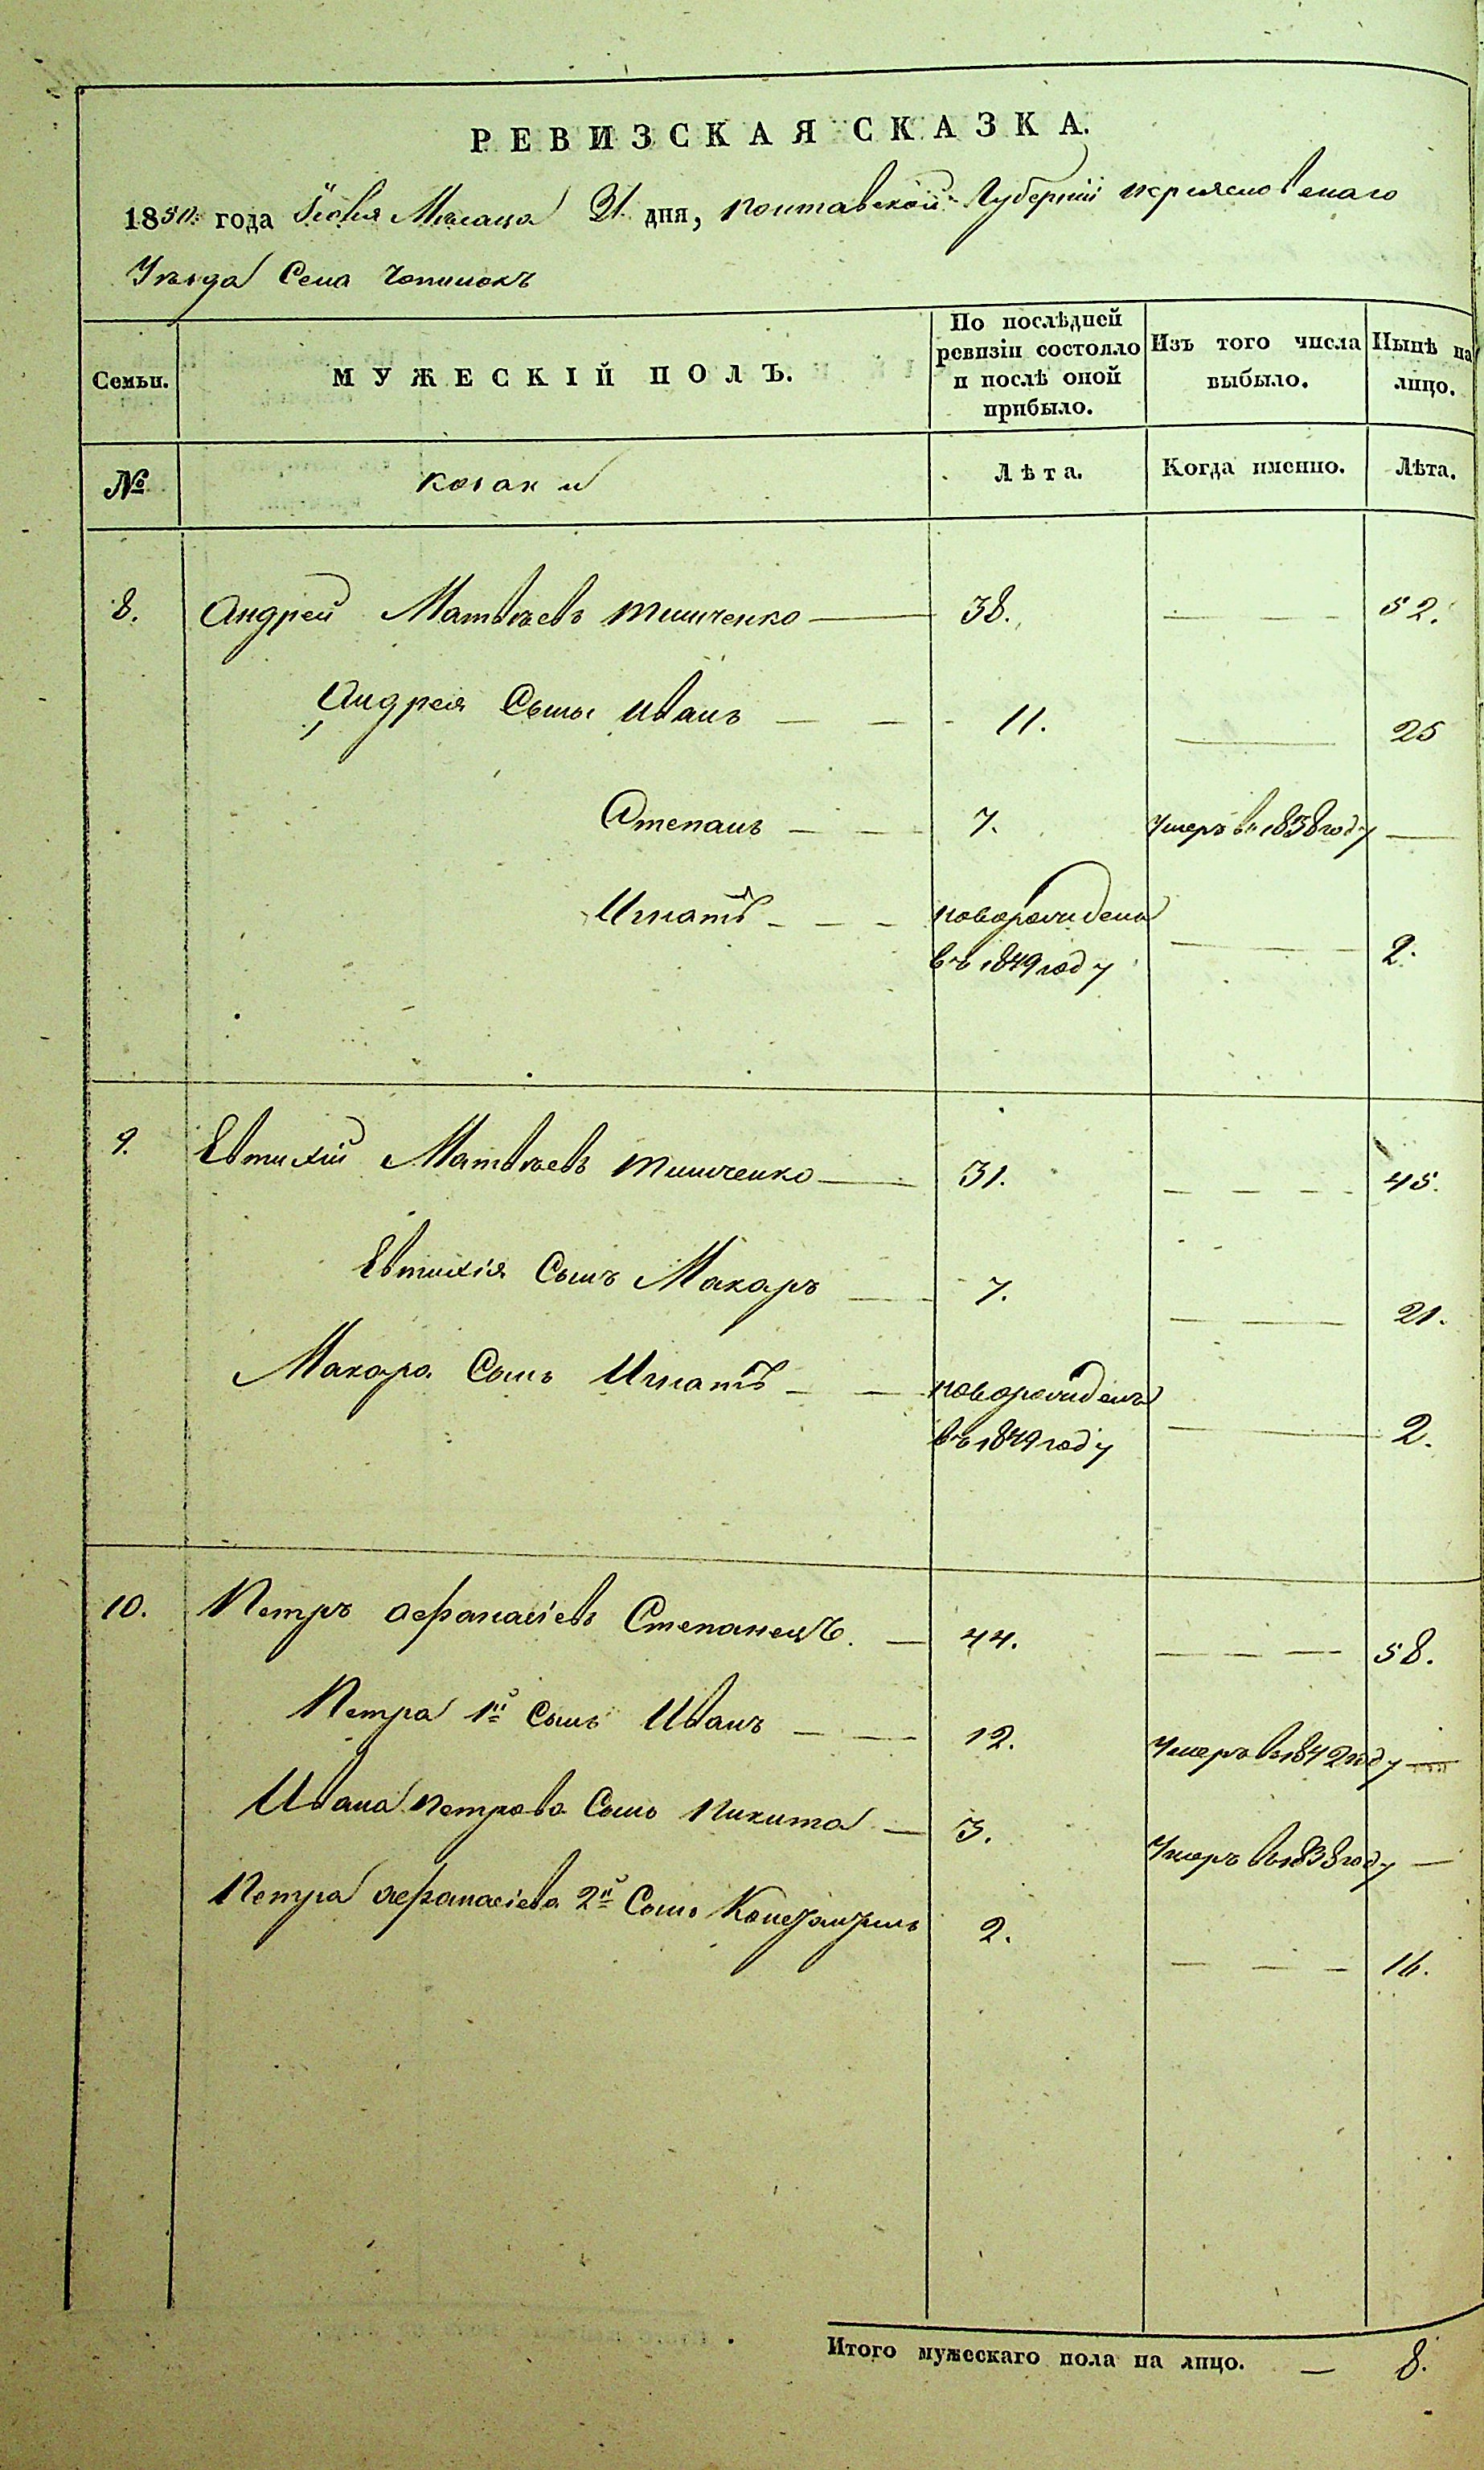 РЕВИЗСКАЯ СКАЗКА.
1850 года Іюня Месяца 21 дня, полтавской Губерніи переясловскаго
Уезда Села Чопилокъ
Семьи.
МУЖЕСКІЙ ПОЛЪ.
По послѣдней ревизіи состояло и послѣ оной прибыло.
Изъ того числа выбыло.
Нынѣ на лицо.
№
козаки
Лѣта.
Когда именно.
Лѣта.
8. Андрей Матвѣевъ тимченко — 38. — — — 52.
Андрея Сыны Иванъ — — - 11. — 25
Степанъ — — 7. Умеръ въ 1838 году —
Игнатъ — — — новорожденъ
въ 1849 году — 2.
9. Евтихій Матвѣевъ тимченко — 31. — — — — 45.
Евтихія Сынъ Макаръ — 7. — 21.
Макара Сынъ Игнатъ — — новорожденъ
въ 1849 году — 2.
10. Петръ афанасіевъ Степанецъ. — 44. — — — 58.
Петра 1й Сынъ Иванъ — — 12. Умеръ въ 1842 году —
Ивана петрова Сынъ Никита — 3. Умеръ въ 1838 году —
Петра афанасіева 2й Сынъ Константинъ 2. — — — 16.
Итого мужескаго пола на лицо. — 8.